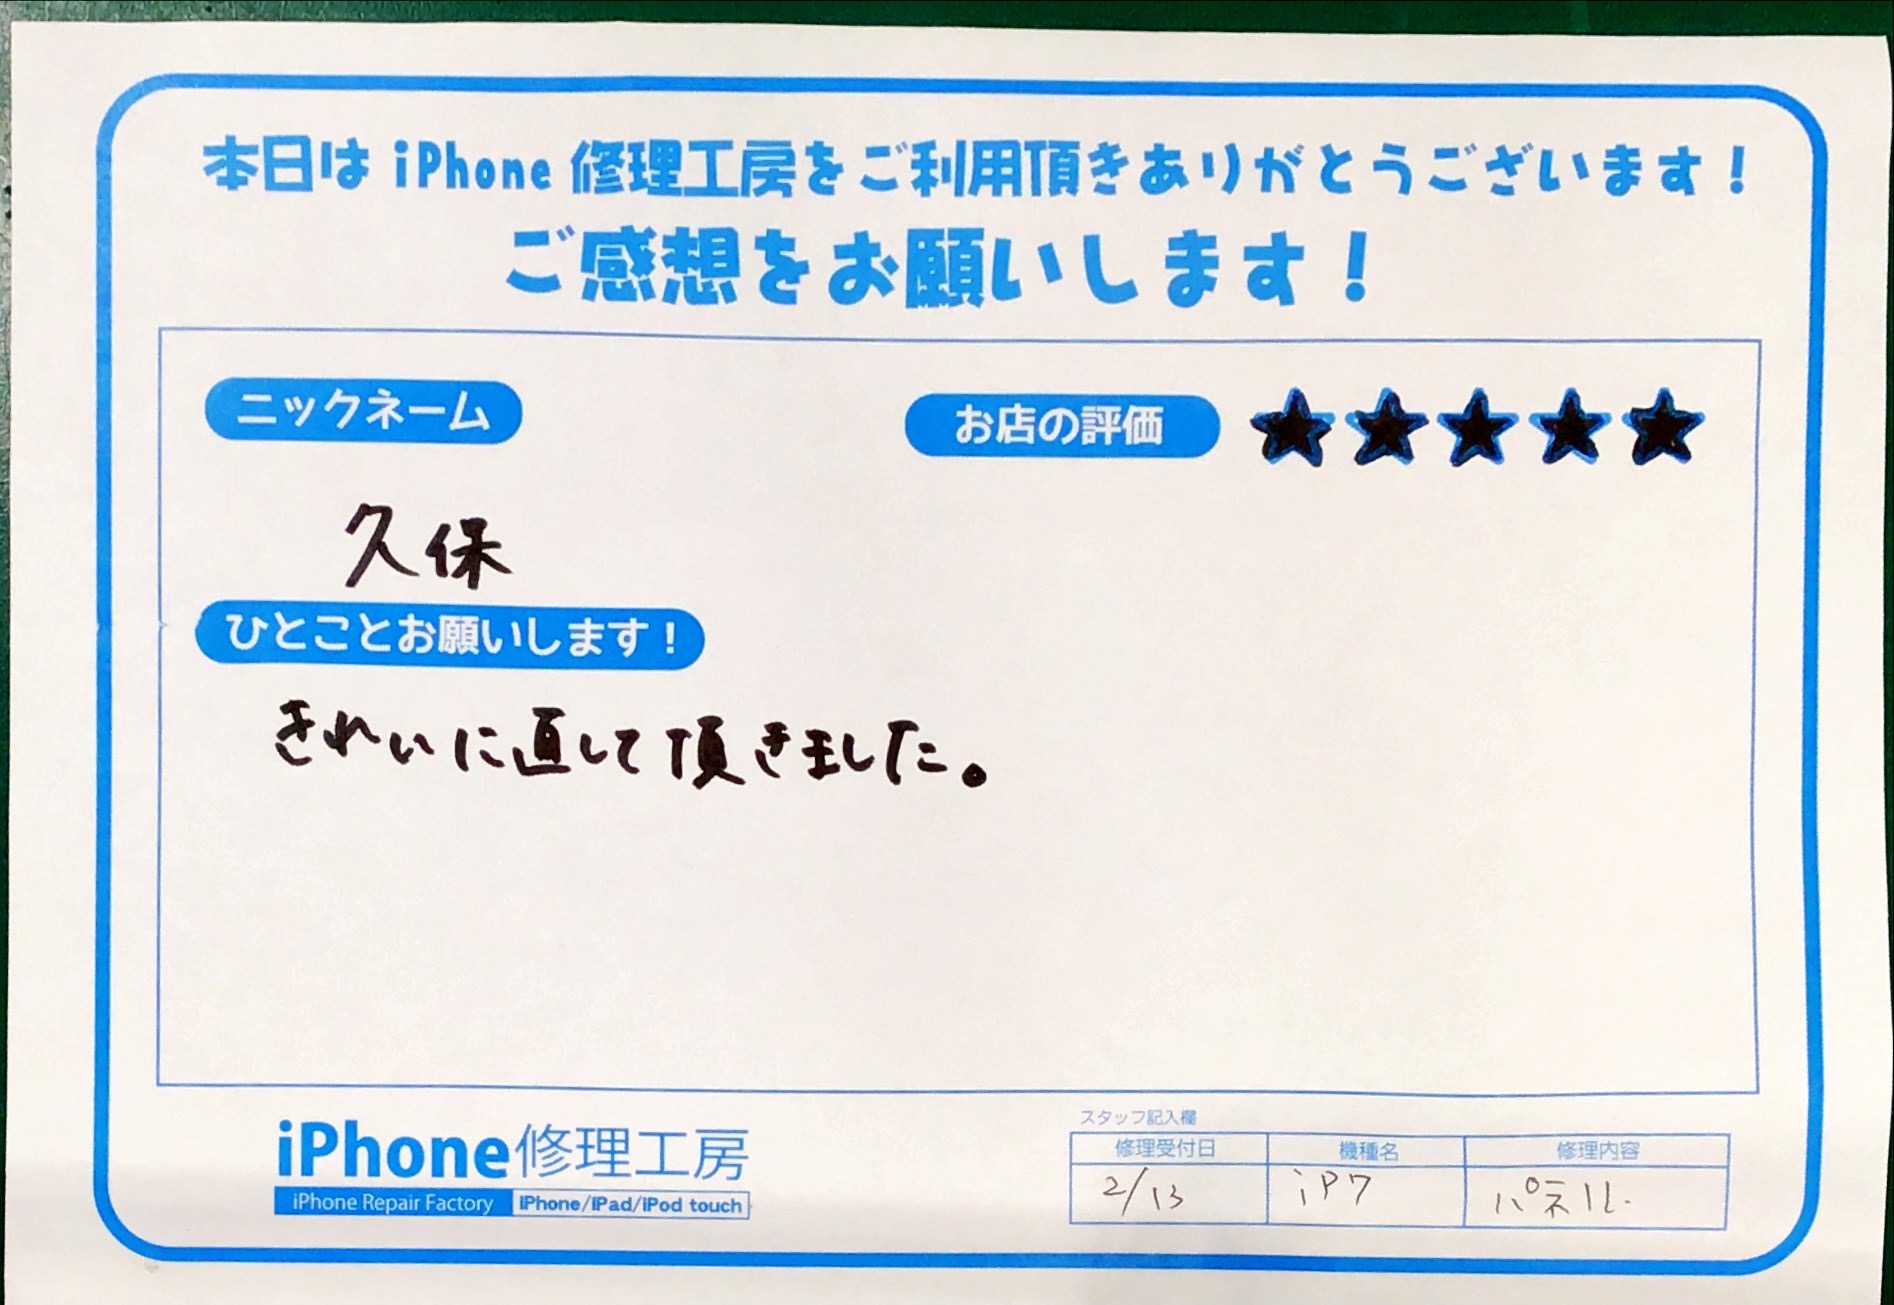 本日は iPhone 修理工房をご利用頂きありがとうございます！
ご感想をお願いします！
ニックネーム
お店の評価 ★★★★★
久保
ひとことお願いします！
きれいに直して頂きました。
iPhone修理工房
iPhone Repair Factory iPhone/iPad/iPod touch
スタッフ記入欄
修理受付日 機種名 修理内容
2/13 iP7 パネル.